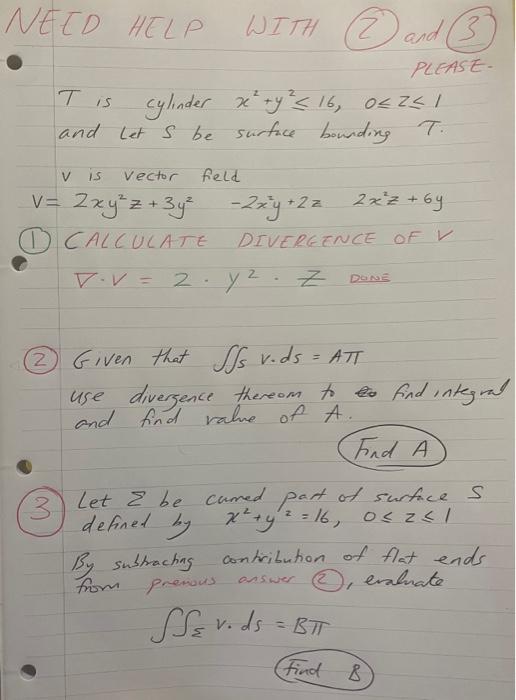 NEED HELP WITH 2 and 3
PLEASE-
T is cylinder x²+y² ≤ 16, 0≤Z≤1
and Let S be surface bounding T.
V is vector field
V= 2xy²z + 3y² -2x²y+2z 2x²z + 6y
1 CALCULATE DIVERGENCE OF V
∇·V = 2 · y² · Z DONE
2 Given that ∬s v.ds = Aπ
use divergence thereom to find integral
and find value of A.
Find A
3 Let Σ be curved part of surface S
defined by x²+y² = 16, 0≤z≤1
By subtracting contribution of flat ends
from previous answer 2, evaluate
∬Σ v.ds = Bπ
Find B